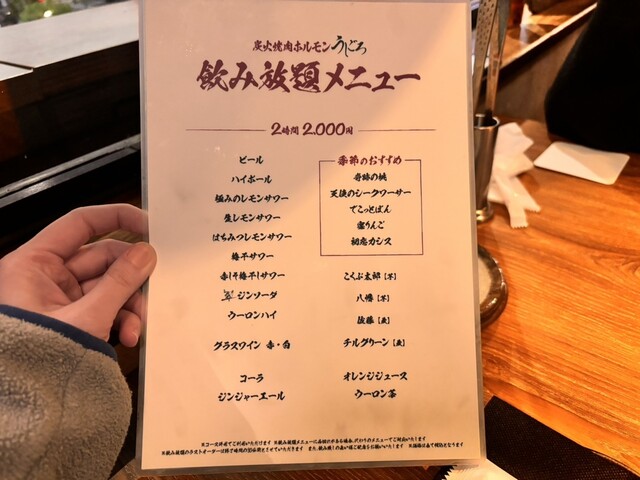 炭火焼肉ホルモン うしごろ
飲み放題メニュー
2時間 2,000円
ビール
ハイボール
極みのレモンサワー
生レモンサワー
はちみつレモンサワー
梅干サワー
赤しそ梅干しサワー
翠 ジンソーダ
ウーロンハイ
グラスワイン 赤・白
コーラ
ジンジャーエール
季節のおすすめ
奇跡の桃
天使のシークワーサー
でこっとぽん
蜜りんご
初恋カシス
こくぶ太郎【芋】
八幡【芋】
佐藤【麦】
チルグリーン【麦】
オレンジジュース
ウーロン茶